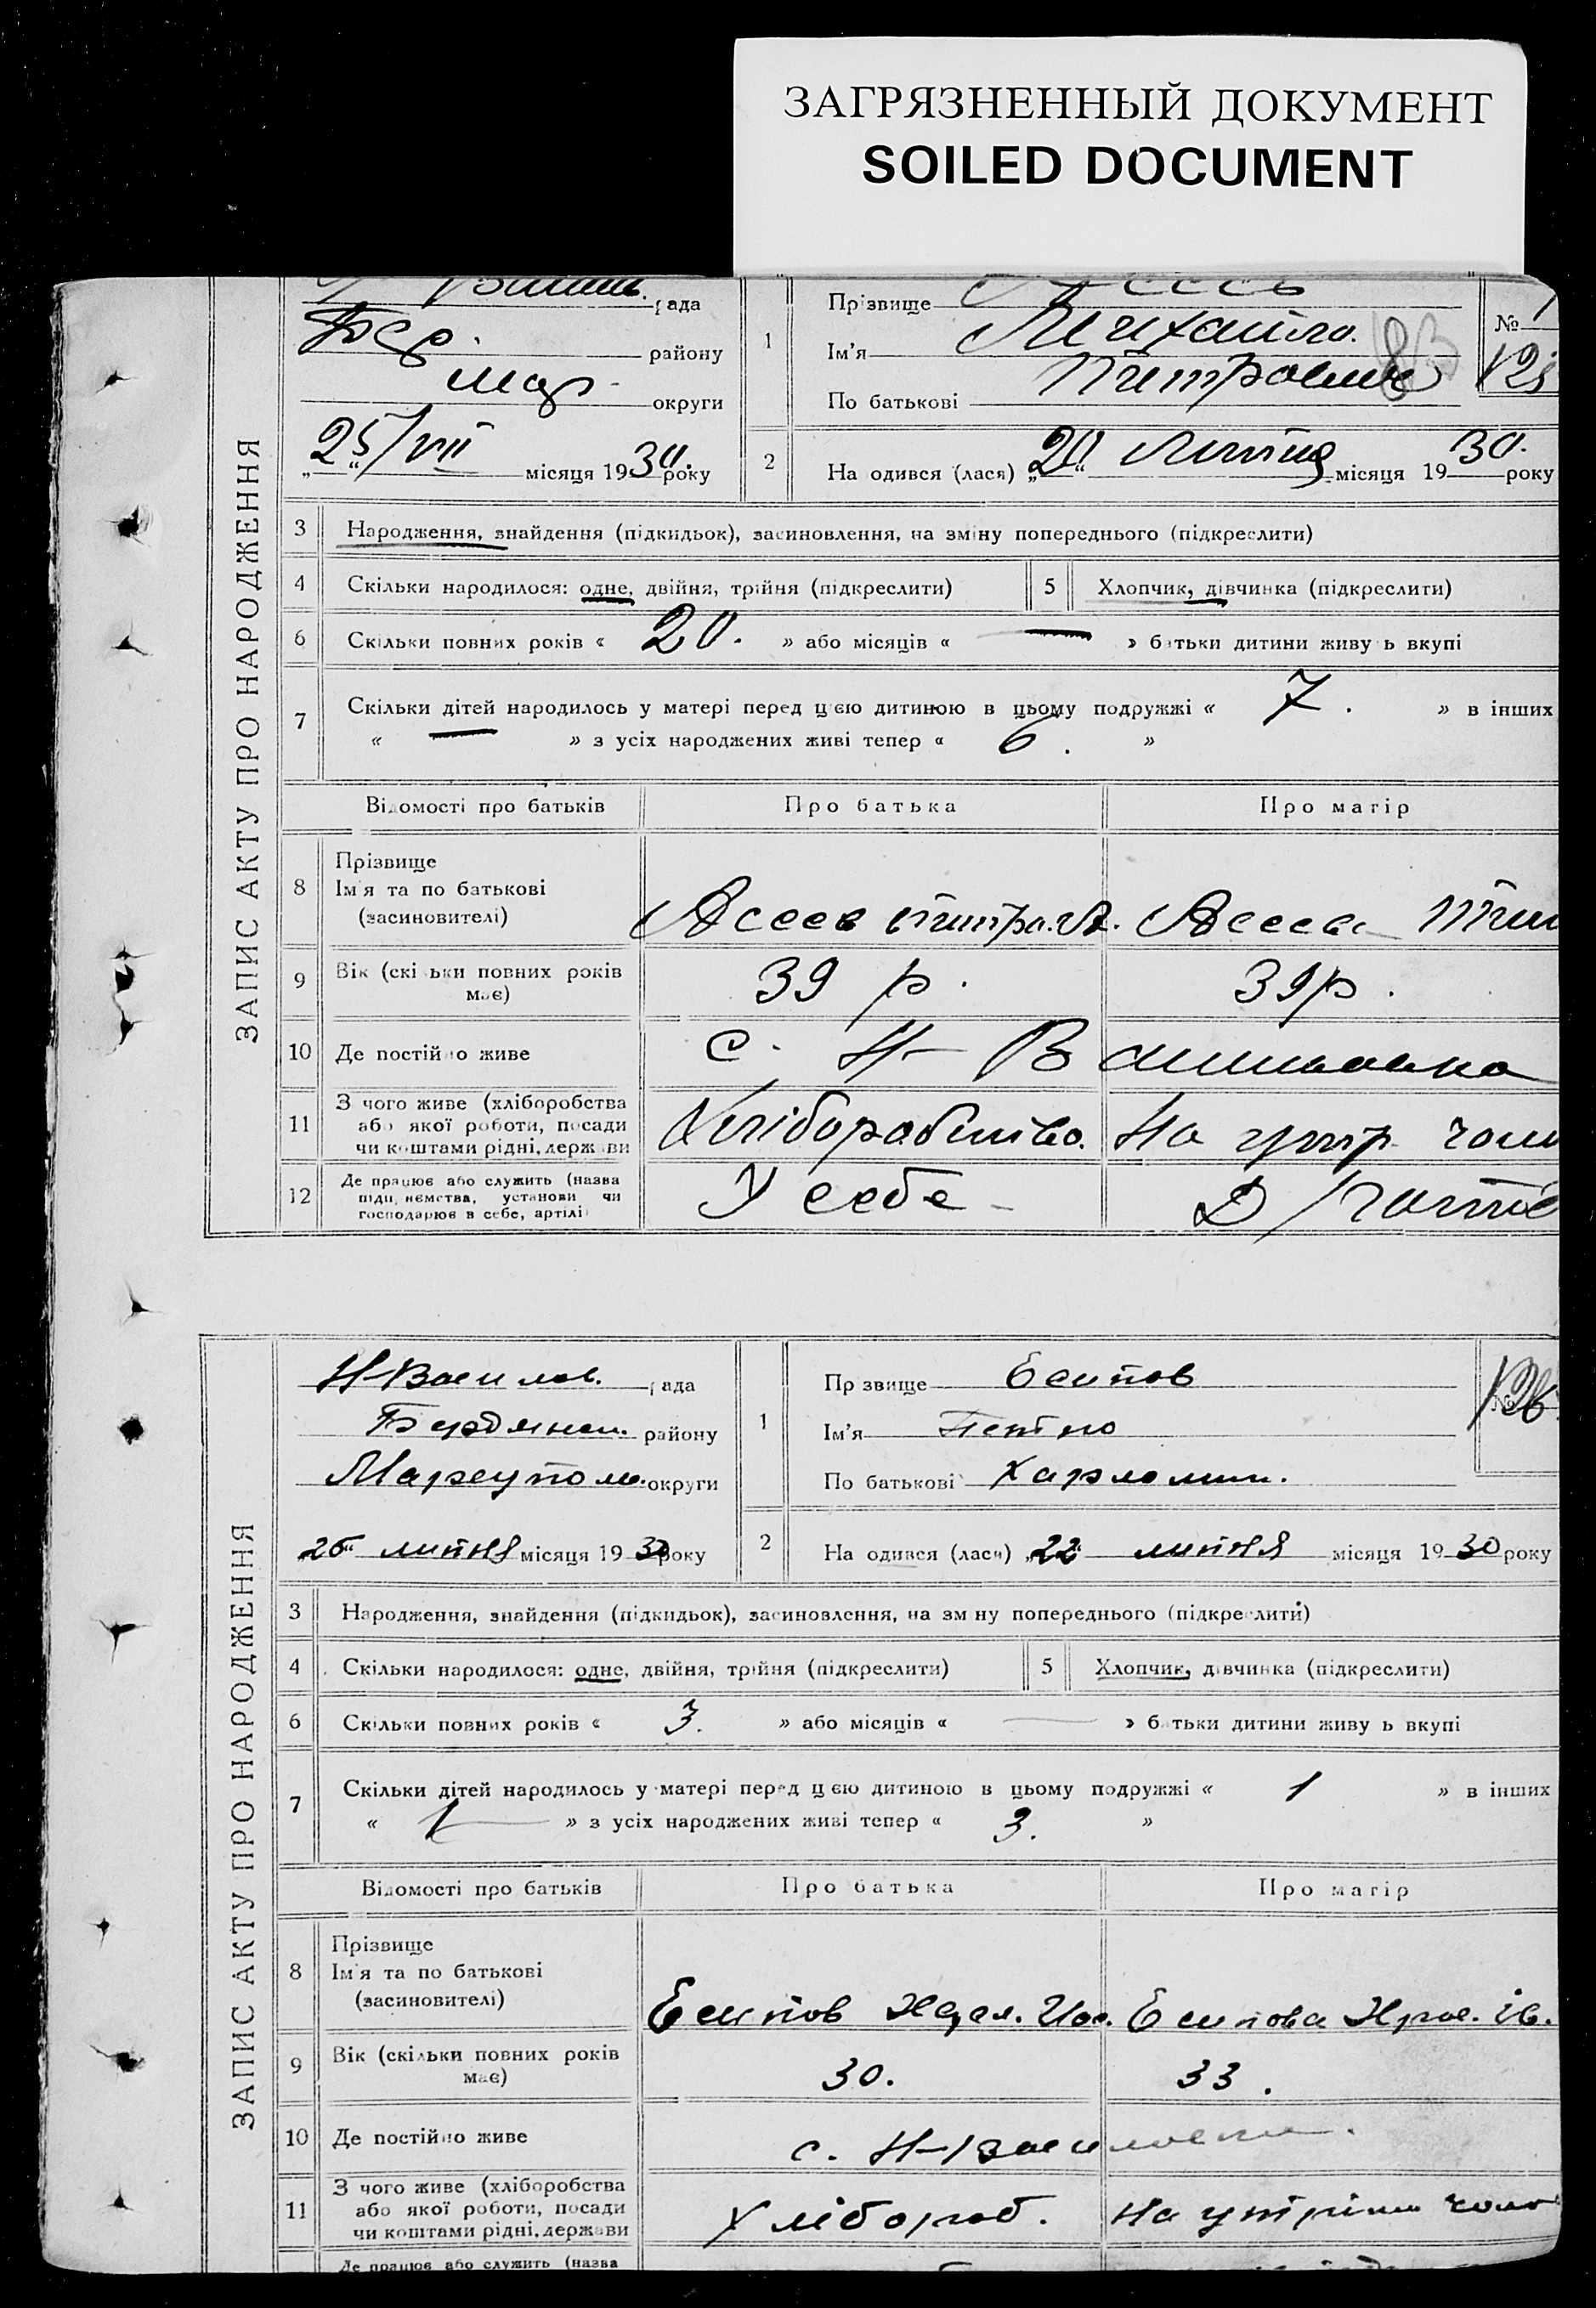 ЗАГРЯЗНЕННЫЙ ДОКУМЕНТ
SOILED DOCUMENT
ЗАПИС АКТУ ПРО НАРОДЖЕННЯ
рада
Бер. району
Мар. округи
„25/VII місяця 1930. року
1
Прізвище
Ім'я Михайло.
По батькові Питрович
№ 125
2
На одився (лася) „20“ Липня місяця 1930. року
3 Народження, знайдення (підкидьок), засиновлення, на зміну попереднього (підкреслити)
4 Скільки народилося: одне, двійня, трійня (підкреслити)
5 Хлопчик, дівчинка (підкреслити)
6 Скільки повних років « 20. » або місяців « — » батьки дитини живу ь вкупі
7 Скільки дітей народилось у матері перед цією дитиною в цьому подружжі « 7. » в інших
« — » з усіх народжених живі тепер « 6. »
Відомості про батьків Про батька Про матір
8 Прізвище
Ім'я та по батькові
(засиновителі)
Асеев Питро. А. Асеева
9 Вік (скільки повних років
має)
39 р. 39 р.
10 Де постійно живе с. Н-Васильовка
11 З чого живе (хліборобства
або якої роботи, посади
чи коштами рідні, держави
Хліборобство. На утр. чол
12 Де працює або служить (назва
підприємства, установи чи
господарює в себе, артілі
У себе Д/госпо
ЗАПИС АКТУ ПРО НАРОДЖЕННЯ
Н-Василов. рада
Бердянск. району
Мареупол. округи
„26“ липня місяця 1930 року
1
Прізвище Есипов
Ім'я Петро
По батькові Харломп.
№ 126
2
На одився (лася) „22“ липня місяця 1930 року
3 Народження, знайдення (підкидьок), засиновлення, на зміну попереднього (підкреслити)
4 Скільки народилося: одне, двійня, трійня (підкреслити)
5 Хлопчик, дівчинка (підкреслити)
6 Скільки повних років « 3. » або місяців « — » батьки дитини живу ь вкупі
7 Скільки дітей народилось у матері перед цією дитиною в цьому подружжі « 1 » в інших
« 1 » з усіх народжених живі тепер « 3. »
Відомості про батьків Про батька Про матір
8 Прізвище
Ім'я та по батькові
(засиновителі)
Есипов Есипова Ів.
9 Вік (скільки повних років
має)
30. 33.
10 Де постійно живе с. Н-Василовка.
11 З чого живе (хліборобства
або якої роботи, посади
чи коштами рідні, держави
Хлібороб. На утрім чоло
Де працює або служить (назва